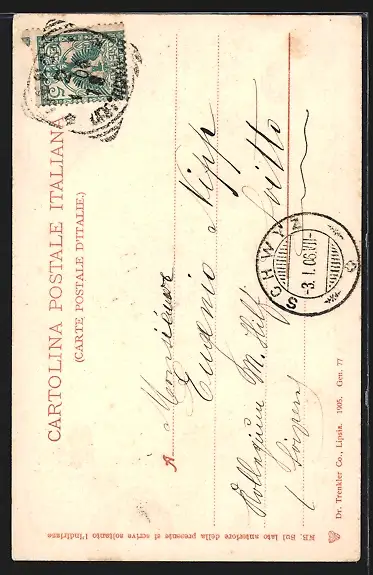 CARTOLINA POSTALE ITALIANA
(CARTE POSTALE D'ITALIE)
A Monsieur
Eugenio Nipp
Kollegium M. Hilf
Svitto
(Svizzera)
SCHWYZ
-3.I.06.VII-
NB. Sul lato anteriore della presente si scrive soltanto l'indirizzo
Dr. Trenkler Co., Lipsia. 1905. Gen. 77